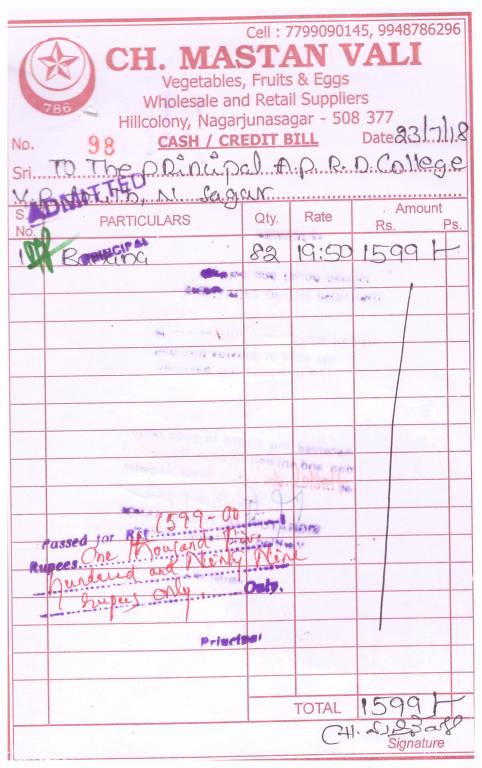 Cell : 7799090145, 9948786296
786
CH. MASTAN VALI
Vegetables, Fruits & Eggs
Wholesale and Retail Suppliers
Hillcolony, Nagarjunasagar - 508 377
No. 98 CASH / CREDIT BILL Date 23/7/18
Sri. To The Principal A.P.R.D. College
V.P. South, N. Sagar
ADMITTED
S. No. PARTICULARS Qty. Rate Amount Rs. Ps.
1 Banana 82 19:50 1599
PRINCIPAL
Passed for Rs. 1599-00
Rupees One thousand five
hundered and Ninty Nine
rupees only. Only.
Principal
TOTAL 1599
Signature